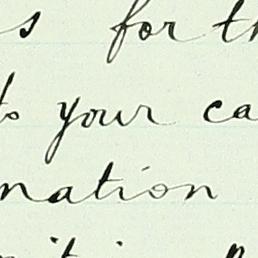 s for th
to your ca
mation